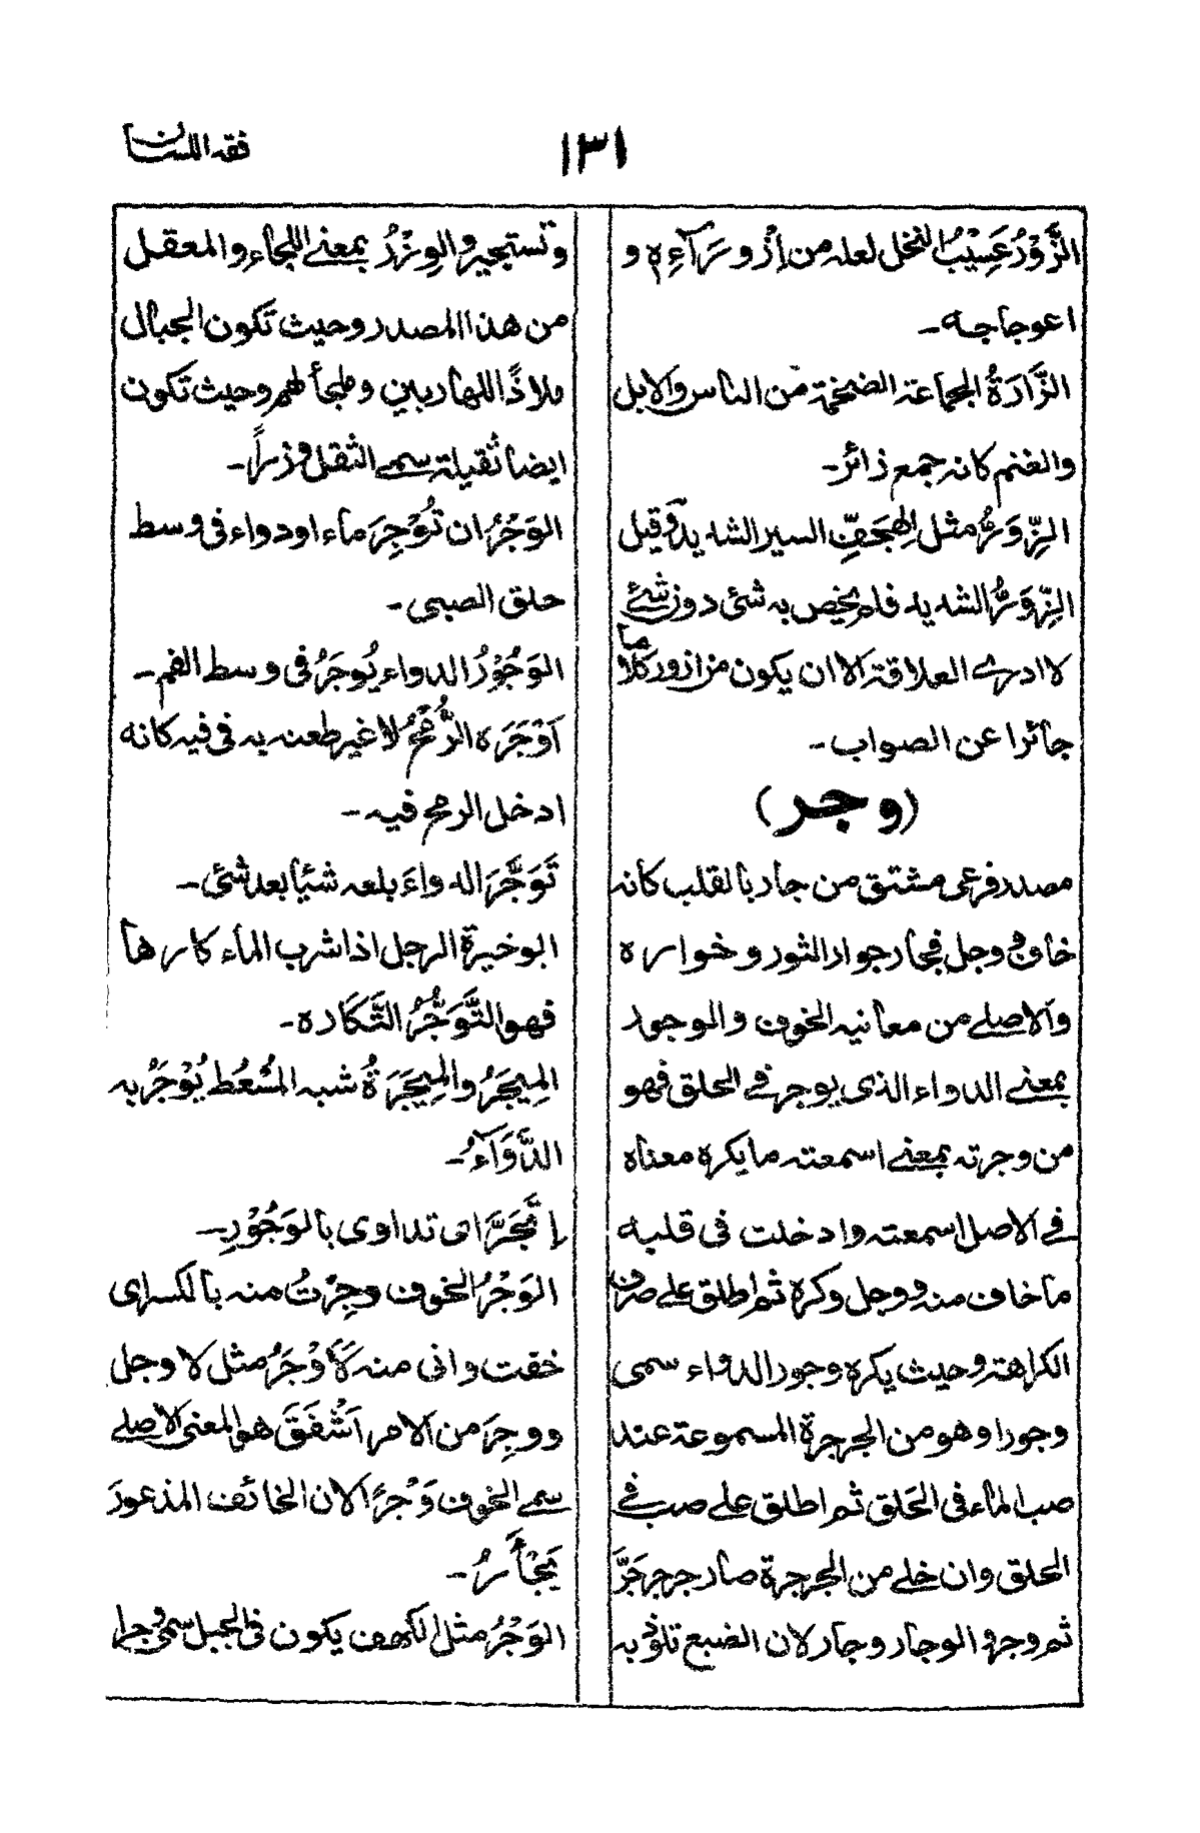 فقه اللسان
١٣١
الزَّوْرُ عَسِيْبُ النخل لعله من اِزْوِرَآءِه و
اعوجاجه۔
الزَّارَةُ الجماعة الضخمة من الناس والابل
والغنم كانه جمع زائر۔
الزِّوَرُّ مثل الهِجَفِّ السير الشديد وقيل
الزِّوَرُّ الشديد فلم يخص به شئ دون شئے
لا ادرے العلاقة الا ان يكون من ازور كلاما
جائرا عن الصواب۔
(وجر)
مصدر فرعى مشتق من جار بالقلب كانه
خاف ووجل فجار جوار الثور وخواره
والاصلے من معانيه الخوف والوجور
بمعنے الدواء الذى يوجر فے الحلق فهو
من وجرته بمعنے اسمعته ما يكره معناه
فے الاصل اسمعته وادخلت فى قلبه
ما خاف منه ووجل وكره ثم اطلق علے صرف
الكراهة وحيث يكره وجور الدواء سمى
وجورا وهو من الجرجرة المسموعة عند
صب الماء فى الحَلق ثم اطلق علے صب فے
الحلق وان خلے من الجرجرة صار جرجر جَرَّ
ثم وجر والوجار وجار لان الضبع تلوذ به
وتستجير والوِزْرُ بمعنے اللجاء والمعقل
من هذا المصدر وحيث تكون الجبال
ملاذًا للهاربين وملجأ لهم وحيث تكون
ايضا ثقيلة سمے الثقل وزراً۔
الوَجْرُ ان تُوْجِرَ ماء او دواء فى وسط
حلق الصبى۔
الوَجُوْرُ الدواء يُوجَرُ فى وسط الفم۔
اَوْجَرَه الرُّمْحَ لا غير طعنه به فى فيه كانه
ادخل الرمح فيه۔
تَوَجَّرَ الدواءَ بلعه شيًا بعد شئ۔
ابو خيرة الرجل اذا شرب الماء كارها
فهو التَّوَجُّرُ التَّكَاره۔
المِيجَرُ والمِيجَرَةُ شبه المُسْعُط يُوْجَرُ به
الدَّوَآءُ۔
اِتَّجَرَ اى تداوى بالوَجُوْرِ۔
الوَجْرُ الخوف وجِرْتُ منه بالكسر اى
خفت وانى منه لَاَوْجَرُ مثل لاوجل
ووجِرَ من الامر اَشْفَقَ هو المعنى الاصلے
سمے الخوف وَجْرًا لان الخائف المذعورَ
يَجْأَرُ۔
الوَجْرُ مثل الكهف يكون فى الجبل سمى وجرا